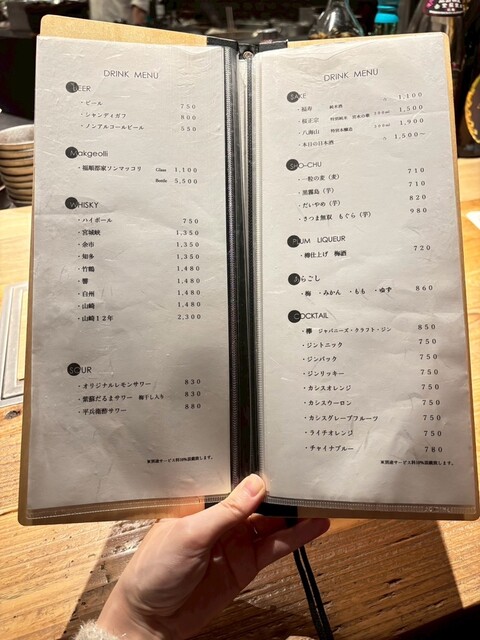 DRINK MENU
BEER
・ビール 750
・シャンディガフ 800
・ノンアルコールビール 550
Makgeolli
・福順都家ソンマッコリ Glass 1,100
Bottle 5,500
WHISKY
・ハイボール 750
・宮城峡 1,350
・余市 1,350
・知多 1,350
・竹鶴 1,480
・響 1,480
・白州 1,480
・山崎 1,480
・山崎12年 2,300
SOUR
・オリジナルレモンサワー 830
・紫蘇だるまサワー 梅干し入り 830
・平兵衛酢サワー 880
※別途サービス料10%頂戴致します。
DRINK MENU
SAKE
・福寿 純米酒 1,100
・桜正宗 特別純米 300ml 1,500
・八海山 特別本醸造 300ml 1,900
・本日の日本酒 1,500〜
SHO-CHU
・一粒の麦(麦) 710
・黒霧島(芋) 710
・だいやめ(芋) 820
・さつま無双 もぐら(芋) 980
PLUM LIQUEUR
・樽仕上げ 梅酒 720
あらごし
・梅 ・みかん ・もも ・ゆず 860
COCKTAIL
・欅 ジャパニーズ・クラフト・ジン 850
・ジントニック 750
・ジンバック 750
・ジンリッキー 750
・カシスオレンジ 750
・カシスウーロン 750
・カシスグレープフルーツ 750
・ライチオレンジ 750
・チャイナブルー 780
※別途サービス料10%頂戴致します。